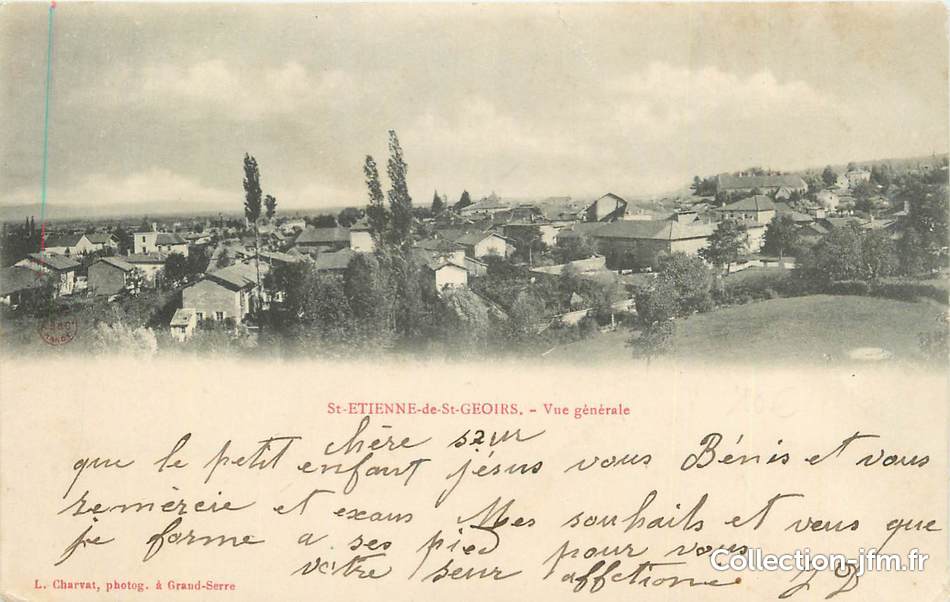 St-ETIENNE-de-St-GEOIRS. - Vue générale
chère sœur
que le petit enfant jésus vous Bénis et vous
remèrcie et exaus Mes souhaits et veus que
je forme a ses pied pour vous
votre seur affetione
L. Charvat, photog. à Grand-Serre
Collection-jfm.fr